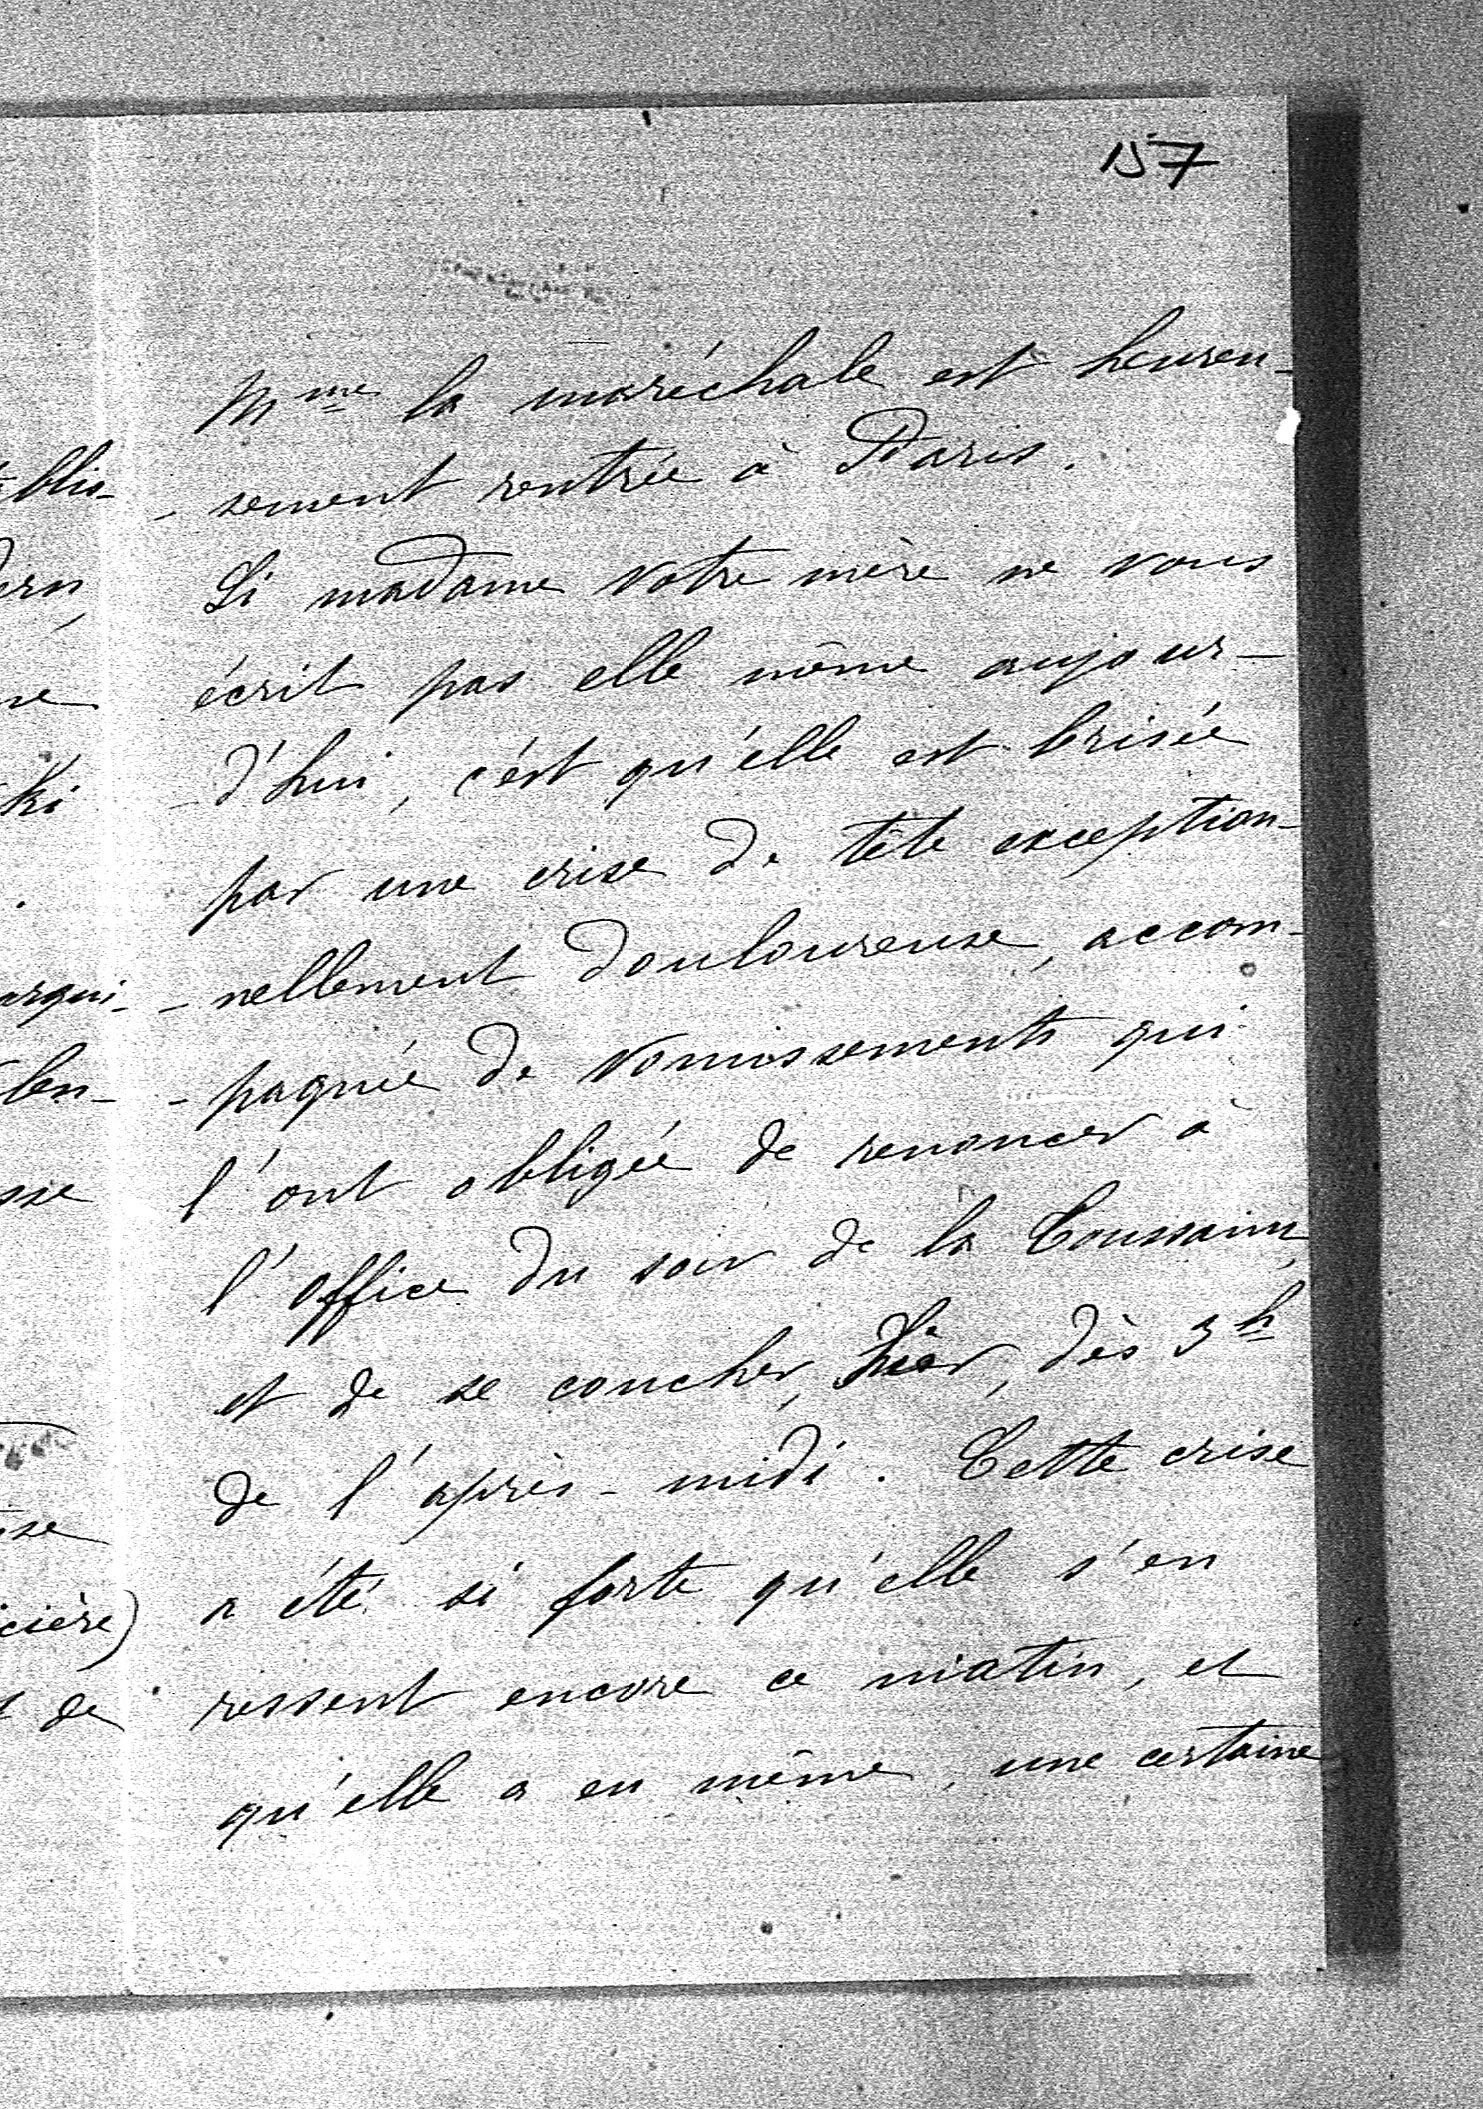 157
Mme la maréchale est heureu-
-sement rentrée à Paris.
Si madame votre mère ne vous
écrit pas elle même aujour-
-d'hui, c'est qu'elle est brisée
par une crise de tête exception-
-nellement douloureuse, accom-
-pagnée de vomissements qui
l'ont obligée de renoncer à
l'office du soir de la Toussaint,
et de se coucher, hier, dès 3h
de l'après-midi. Cette crise
a été si forte qu'elle s'en
ressent encore ce matin, et
qu'elle a eu même, une certaine